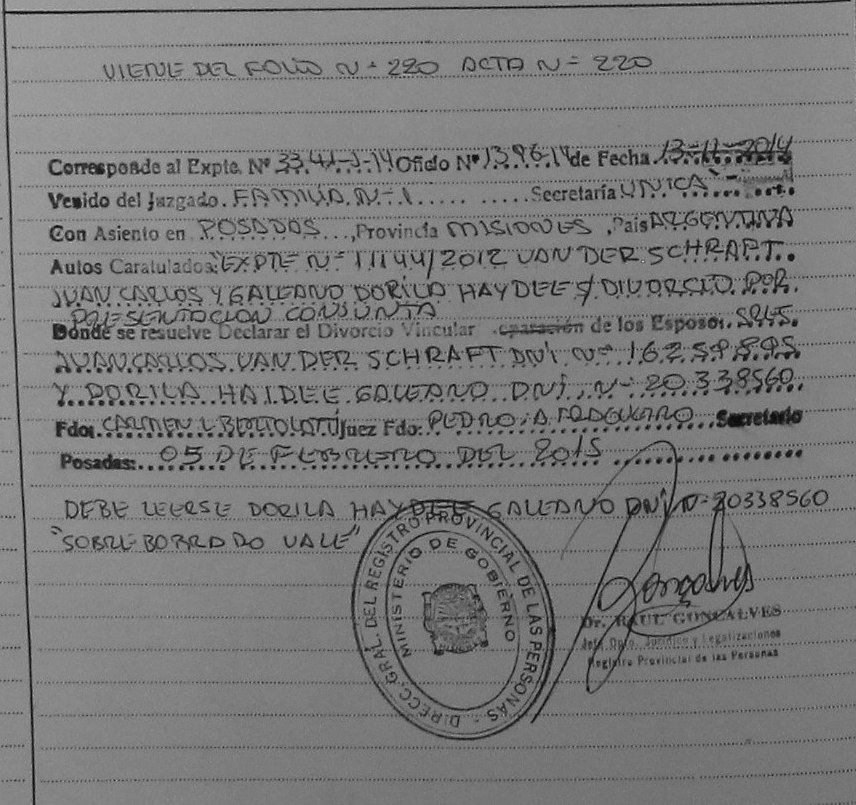 VIENE DEL FOLIO N= 220 ACTA N= 220
Corresponde al Expte. Nº 3341-J-14 Oficio Nº 1396.14 de Fecha 13-11-2014
Venido del Juzgado. FAMILIA. N-1 Secretaría UNICA -
Con Asiento en POSADAS, Provincia MISIONES, Pais ARGENTINA
Autos Caratulados: EXPTE N= 11144/2012 VAN DER SCHRAFT.
JUAN CARLOS Y GALEANO DORILA HAYDEE S/ DIVORCIO POR
PRESENTACION CONJUNTA
Donde se resuelve Declarar el Divorcio Vincular de los Esposos. SRES.
JUAN CARLOS VAN DER SCHRAFT DNI N= 16.259.895
Y DORILA HAIDEE GALEANO DNI. N- 20.338560.
Fdo: CARMEN Juez Fdo: PEDRO A Secretario
Posadas: 05 DE FEBRERO DEL 2015
DEBE LEERSE DORILA HAYDEE GALEANO DNI N= 20338560
"SOBRE BORRADO VALE"
DIRECC. GRAL. DEL REGISTRO PROVINCIAL DE LAS PERSONAS -
MINISTERIO DE GOBIERNO
Gonçalves
Dr. RAUL GONCALVES
Jefe Dpto. Jurídico y Legalizaciones
Registro Provincial de las Personas